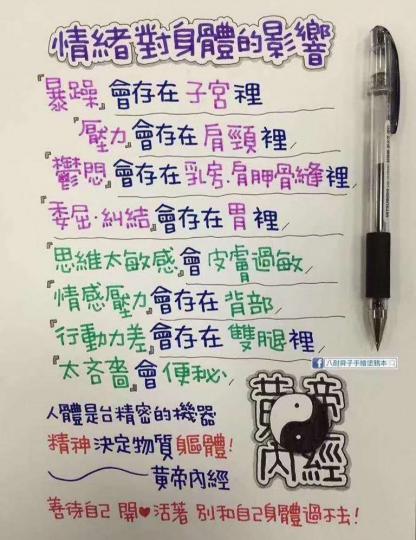 情緒對身體的影響
『暴躁』會存在 子宮裡
『壓力』會存在 肩頸裡,
『鬱悶』會存在乳房.肩胛骨縫裡,
『委屈.糾結』會存在 胃裡
『思維太敏感』會 皮膚過敏
『情感壓力』會存在 背部
『行動力差』會存在 雙腿裡
『太吝嗇』會 便秘
八耐舜子手繪塗鴉本
人體是台精密的機器
精神 決定物質 軀體!
黃帝內經
黃帝內經
善待自己 開♥活著 別和自己身體過不去!